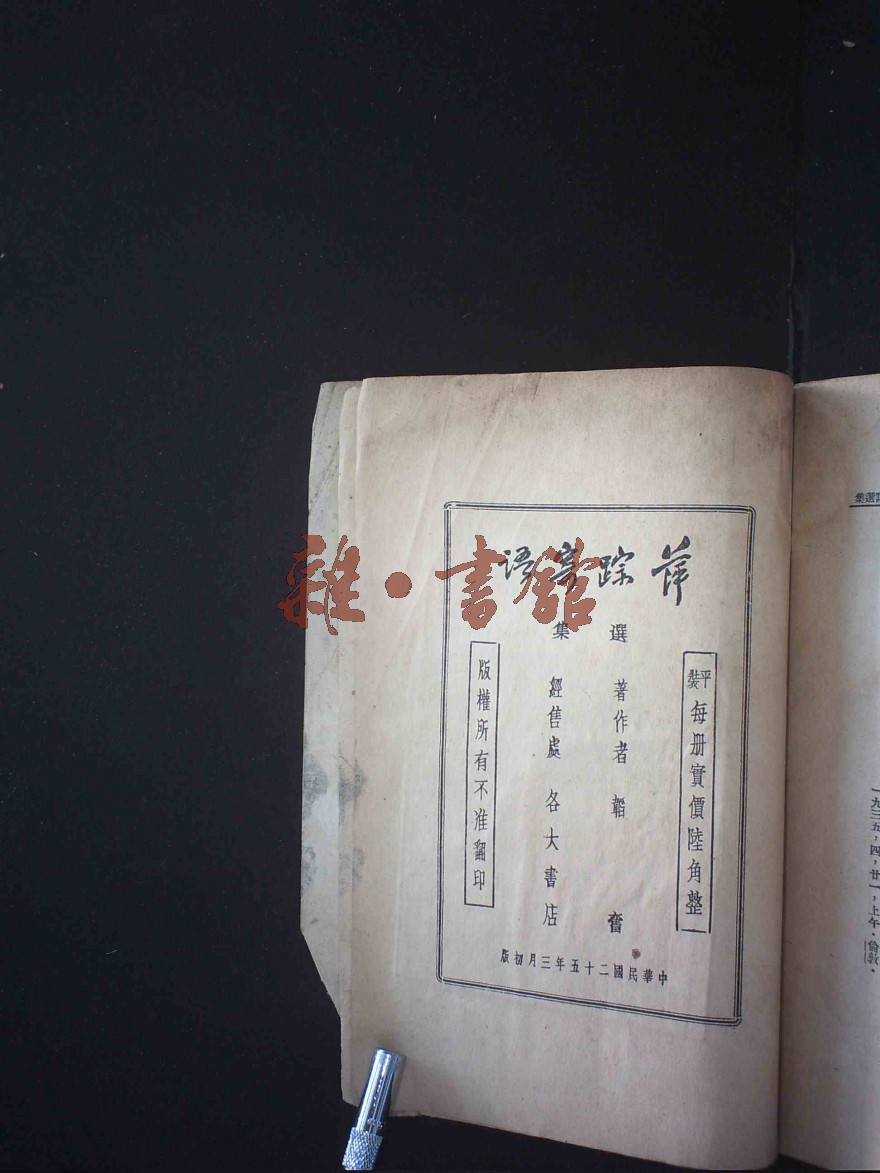 選集
一九三五，四，廿一，上午．倫敦．
萍踪寄語
選集
平裝 每册實價陸角整
著作者 韜奮
經售處 各大書店
版權所有不准翻印
中華民國二十五年三月初版
雜·書館